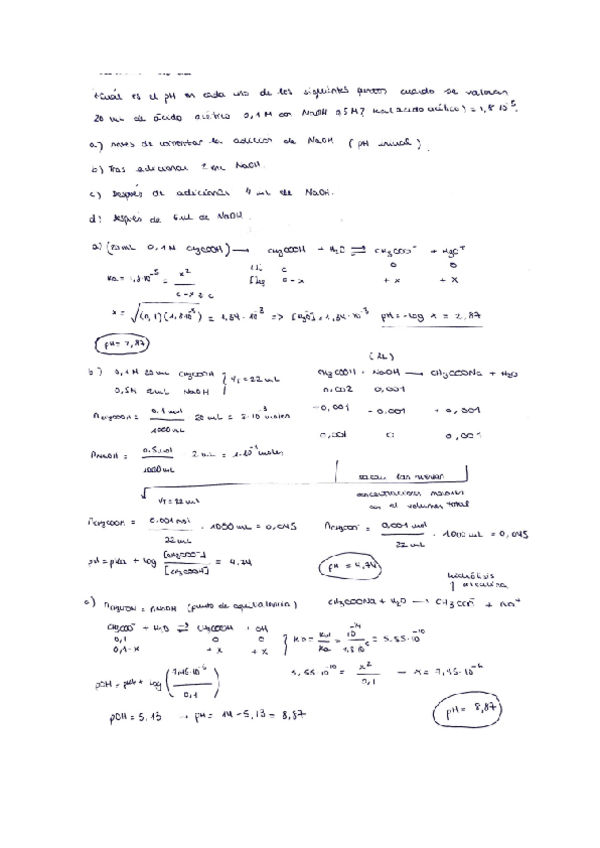 ¿Cuál es el pH en cada uno de los siguientes puntos cuando se valoran
20 mL de ácido acético 0,1 M con NaOH 0,5 M? Ka(ácido acético) = 1,8·10⁻⁵.
a) antes de comenzar la adición de NaOH (pH inicial).
b) Tras adicionar 2 mL NaOH.
c) Después de adicionar 4 mL de NaOH.
d) Después de 6 mL de NaOH.
a) (20 mL 0,1 M CH3COOH) → CH3COOH + H2O ⇌ CH3COO⁻ + H3O⁺
c 0 0
Ka = 1,8·10⁻⁵ = x² / c-x≈c
c-x +x +x
x = √(0,1)(1,8·10⁻⁵) = 1,34·10⁻³ => [H3O⁺] = 1,34·10⁻³ pH = -log x = 2,87
pH = 2,87
b) 0,1 M 20 mL CH3COOH
0,5M 2 mL NaOH } VT = 22 mL
CH3COOH + NaOH → CH3COONa + H2O
0,002 0,001
-0,001 -0,001 +0,001
0,001 0 0,001
nCH3COOH = 0,1 mol / 1000 mL 20 mL = 2·10⁻³ moles
nNaOH = 0,5 mol / 1000 mL 2 mL = 1·10⁻³ moles
VT = 22 mL
sacar las nuevas
concentraciones molares
con el volumen total
nCH3COOH = 0,001 mol / 22 mL · 1000 mL = 0,045
nCH3COO⁻ = 0,001 mol / 22 mL · 1000 mL = 0,045
pH = pKa + log [CH3COO⁻] / [CH3COOH] = 4,74
pH = 4,74
hidrólisis
alcalina
c) nCH3COOH = nNaOH (punto de equivalencia) CH3COONa + H2O → CH3COO⁻ + Na⁺
CH3COO⁻ + H2O ⇌ CH3COOH + OH
0,1 0 0
0,1-x +x +x
= 10⁻¹⁴ / 1,8·10⁻⁵ = 5,55·10⁻¹⁰
5,55·10⁻¹⁰ = x² / 0,1 → x = 7,45·10⁻⁶
pOH = + log (7,45·10⁻⁶ / 0,1)
pOH = 5,13 → pH = 14 - 5,13 = 8,87
pH = 8,87